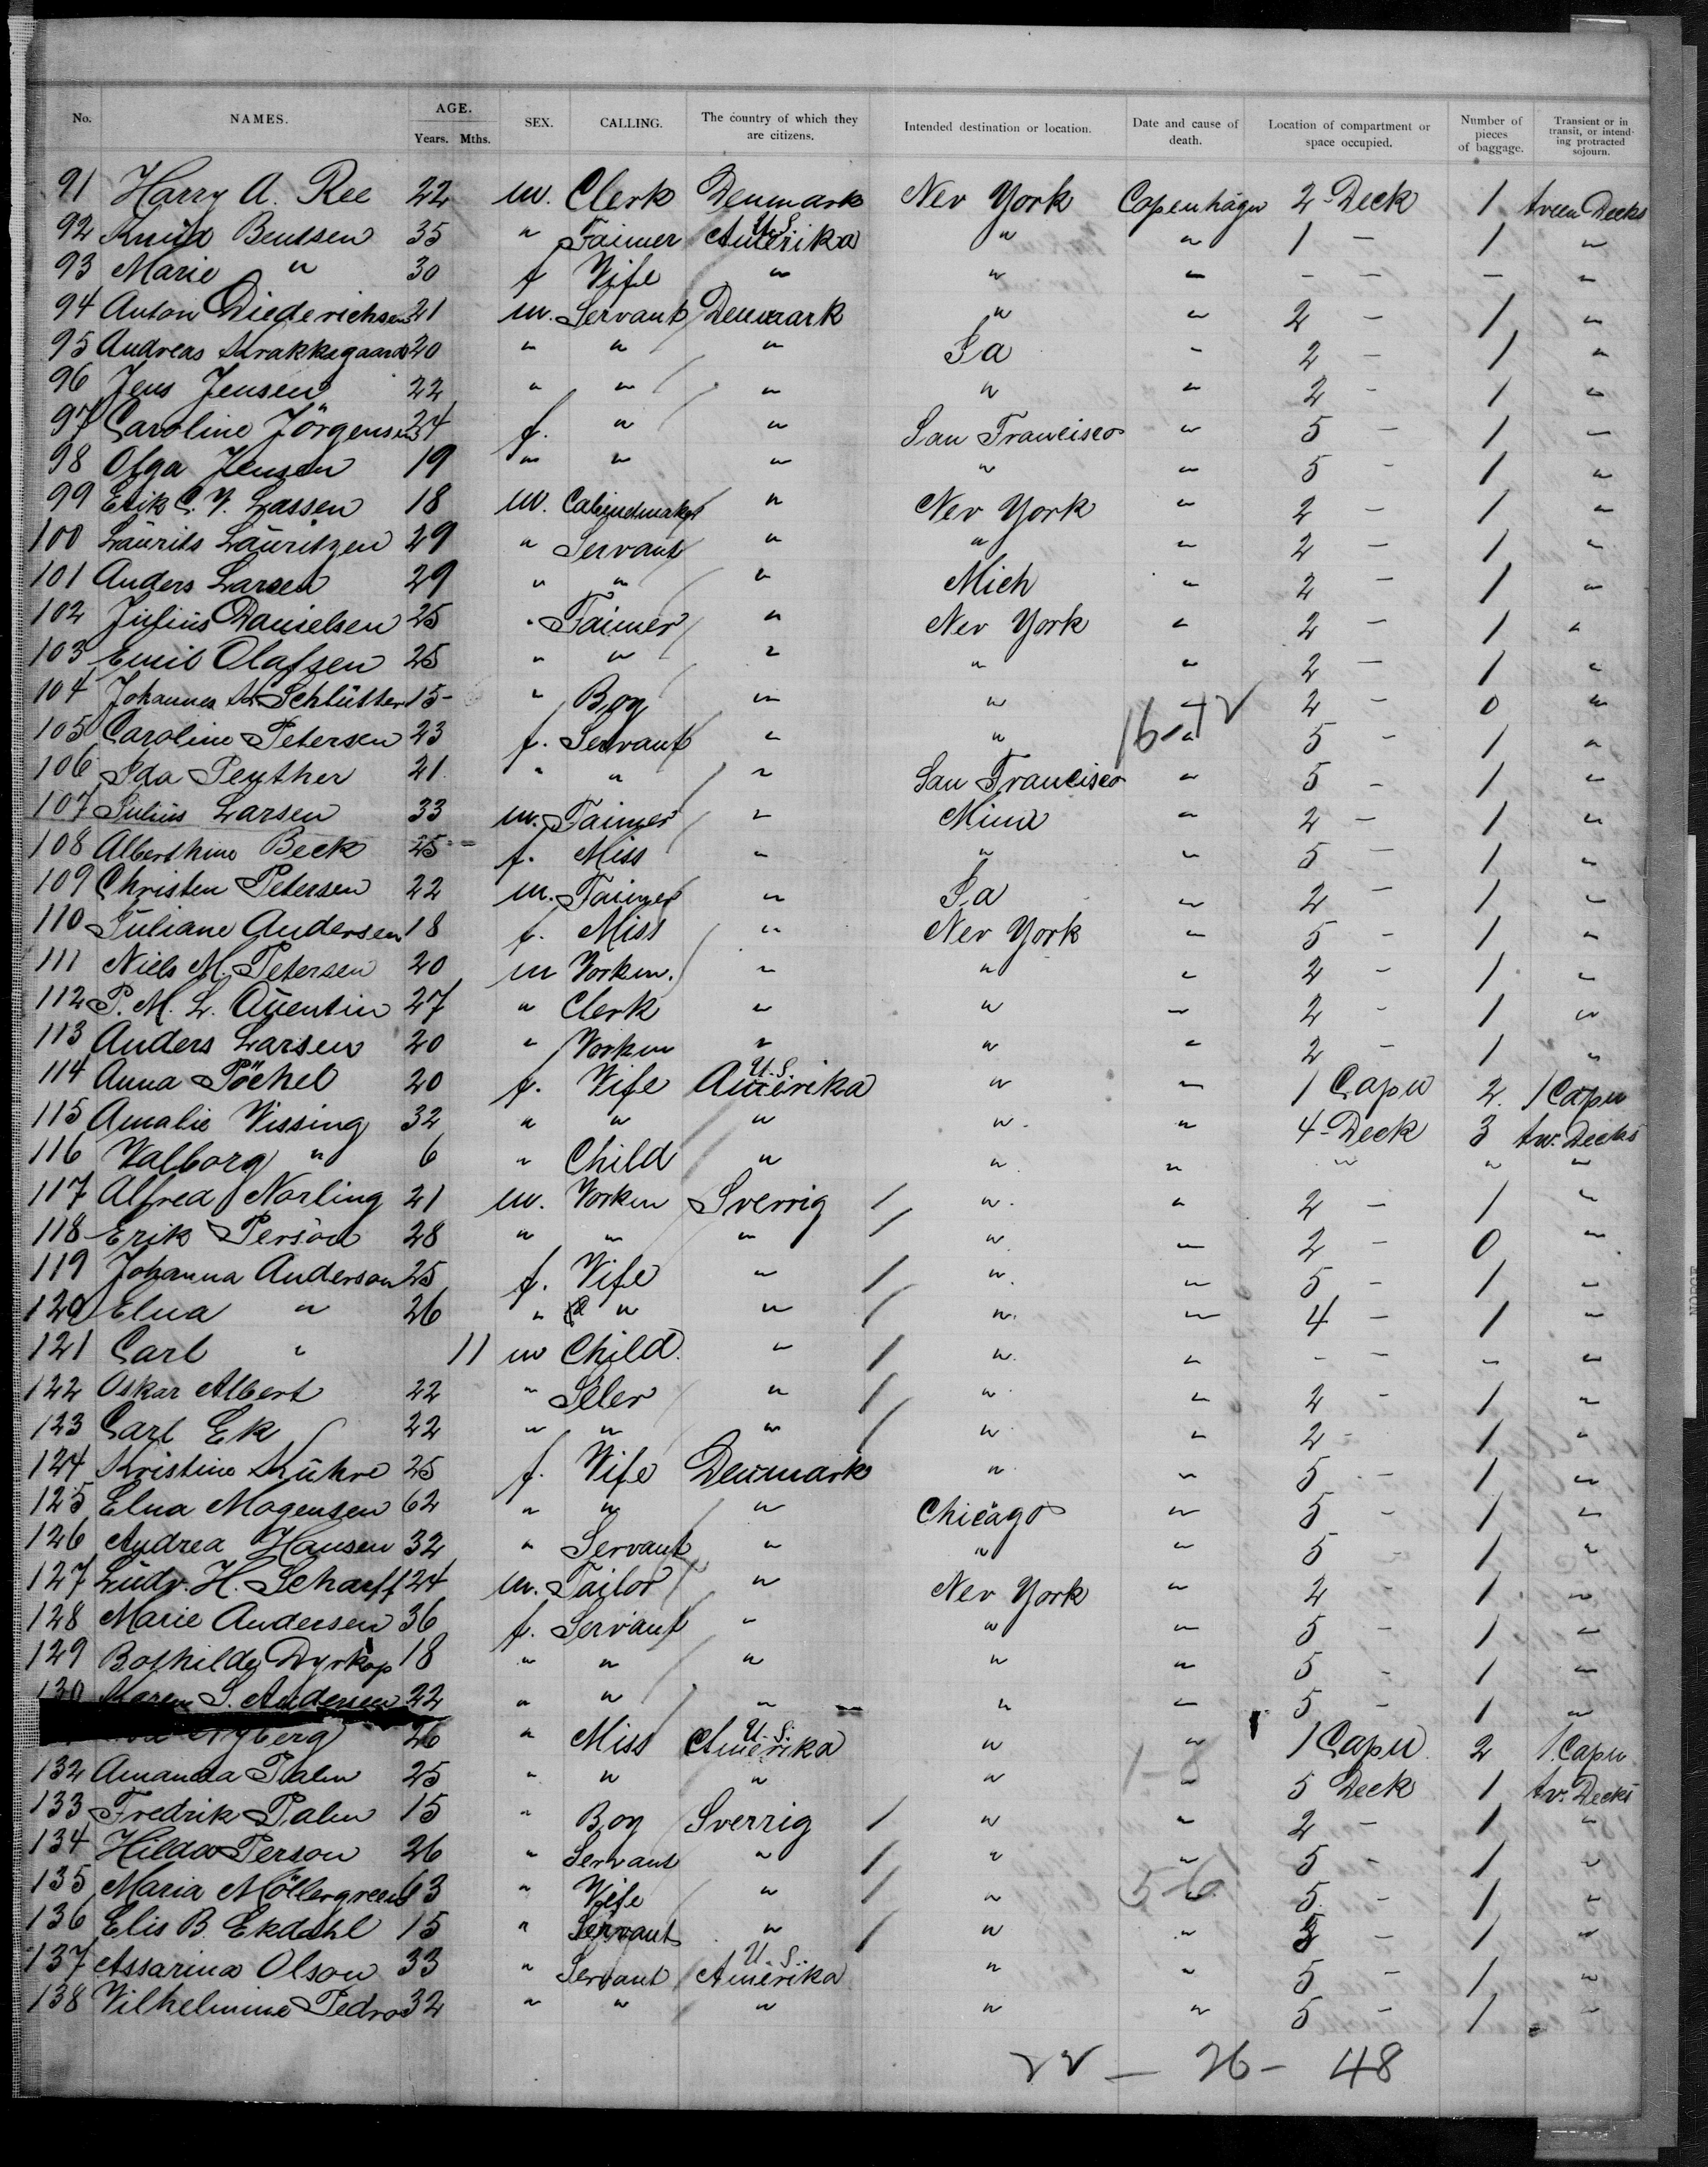 No. NAMES. AGE. Years. Mths. SEX. CALLING. The country of which they are citizens. Intended destination or location. Date and cause of death. Location of compartment or space occupied. Number of pieces of baggage. Transient or in transit, or intending protracted sojourn.
91 Harry A. Ree 22 m. Clerk Denmark New York Copenhagen 2 Deck 1 tween Decks
92 Knud Bentsen 35 " Faimer U.S. Amerika " " 1 - 1 "
93 Marie " 30 f Wife " " " - - - "
94 Anton Diederichsen 21 m. Servant Denmark " " 2 - 1 "
95 Andreas Krakkegaard 20 " " " Ia " 2 - 1 "
96 Jens Jensen 22 " " " " " 2 - 1 "
97 Caroline Jörgensen 24 f. " " San Francisco " 5 - 1 "
98 Olga Jensen 19 " " " " " 5 - 1 "
99 Erik C. V. Lassen 18 m. Cabinetmaker " New York " 2 - 1 "
100 Laurits Lauritzen 29 " Servant " " " 2 - 1 "
101 Anders Larsen 29 " " " Mich " 2 - 1 "
102 Julius Danielsen 25 " Faimer " New York " 2 - 1 "
103 Emil Olafsen 25 " " " " " 2 - 1 "
104 Johannes Schlütter 15 - " Boy " " " 2 - 0 "
105 Caroline Petersen 23 f. Servant " " " 5 - 1 "
106 Ida Peuther 21 " " " San Francisco " 5 - 1 "
107 Julius Larsen 33 m. Faimer " Minn " 2 - 1 "
108 Alberthine Beck 25 f. Miss " " " 5 - 1 "
109 Christen Petersen 22 m. Faimer " Ia " 2 - 1 "
110 Juliane Andersen 18 f. Miss " New York " 5 - 1 "
111 Niels M. Petersen 20 m Workm. " " " 2 - 1 "
112 P. M. L. Quentin 27 " Clerk " " " 2 - 1 "
113 Anders Larsen 20 " Workm " " " 2 - 1 "
114 Anna Pöckel 20 f. Wife U.S. Amerika " " 1 Capu 2. 1 Capu
115 Amalie Wissing 32 " " " " " 4 Deck 3 tw. Decks
116 Valborg " 6 " Child " " " " " "
117 Alfred Norling 21 m. Workm Sverrig / " " 2 - 1 "
118 Erik Person 28 " " " / " " 2 - 0 "
119 Johanna Anderson 25 f. Wife " / " " 5 - 1 "
120 Elna " 26 " " " / " " 4 - 1 "
121 Carl " 11 m Child " / " " - - " "
122 Oskar Albert 22 " Seler " / " " 2 - 1 "
123 Carl Ek 22 " " " / " " 2 - 1 "
124 Kristine Kühre 25 f. Wife Denmark " " 5 - 1 "
125 Elna Mogensen 62 " " " Chicago " 5 - 1 "
126 Andrea Hansen 32 " Servant " " " 5 - 1 "
127 Ludv. H. Scharff 24 m. Tailor " New York " 2 - 1 "
128 Marie Andersen 36 f. Servant " " " 5 - 1 "
129 Bothilde Dyrkop 18 " " " " " 5 - 1 "
130 Maren S. Andersen 22 " " " " " 5 - 1 "
Nyberg 26 " Miss U.S. Amerika " " 1 Capu 2 1 Capu
132 Amanda Palm 25 " " " " " 5 Deck 1 tw. Decks
133 Fredrik Palm 15 " Boy Sverrig / " " 2 - 1 "
134 Hilda Person 26 " Servant " / " " 5 - 1 "
135 Maria Möllergreen 63 " Wife " / " " 5 - 1 "
136 Elis B. Ekdahl 15 " Servant " / " " - 1 "
137 Assarina Olson 33 " Servant U.S. Amerika " " 5 - 1 "
138 Vilhelmine Pedro 32 " " " " " 5 - 1 "
16-12
1-8
5-6
22 - 26 - 48